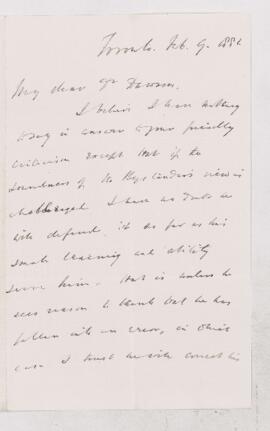 Toronto. Feb. 9. 1882
My dear Dr Dawson.
I believe I have nothing
to say in answer to your friendly
criticism except that if the
soundness of the Bystander's view is
challenged I have no doubt he
will defend it as far as his
small learning and ability
serve him. That is unless he
sees reason to think that he has
fallen into an error, in which
case I trust he will correct his